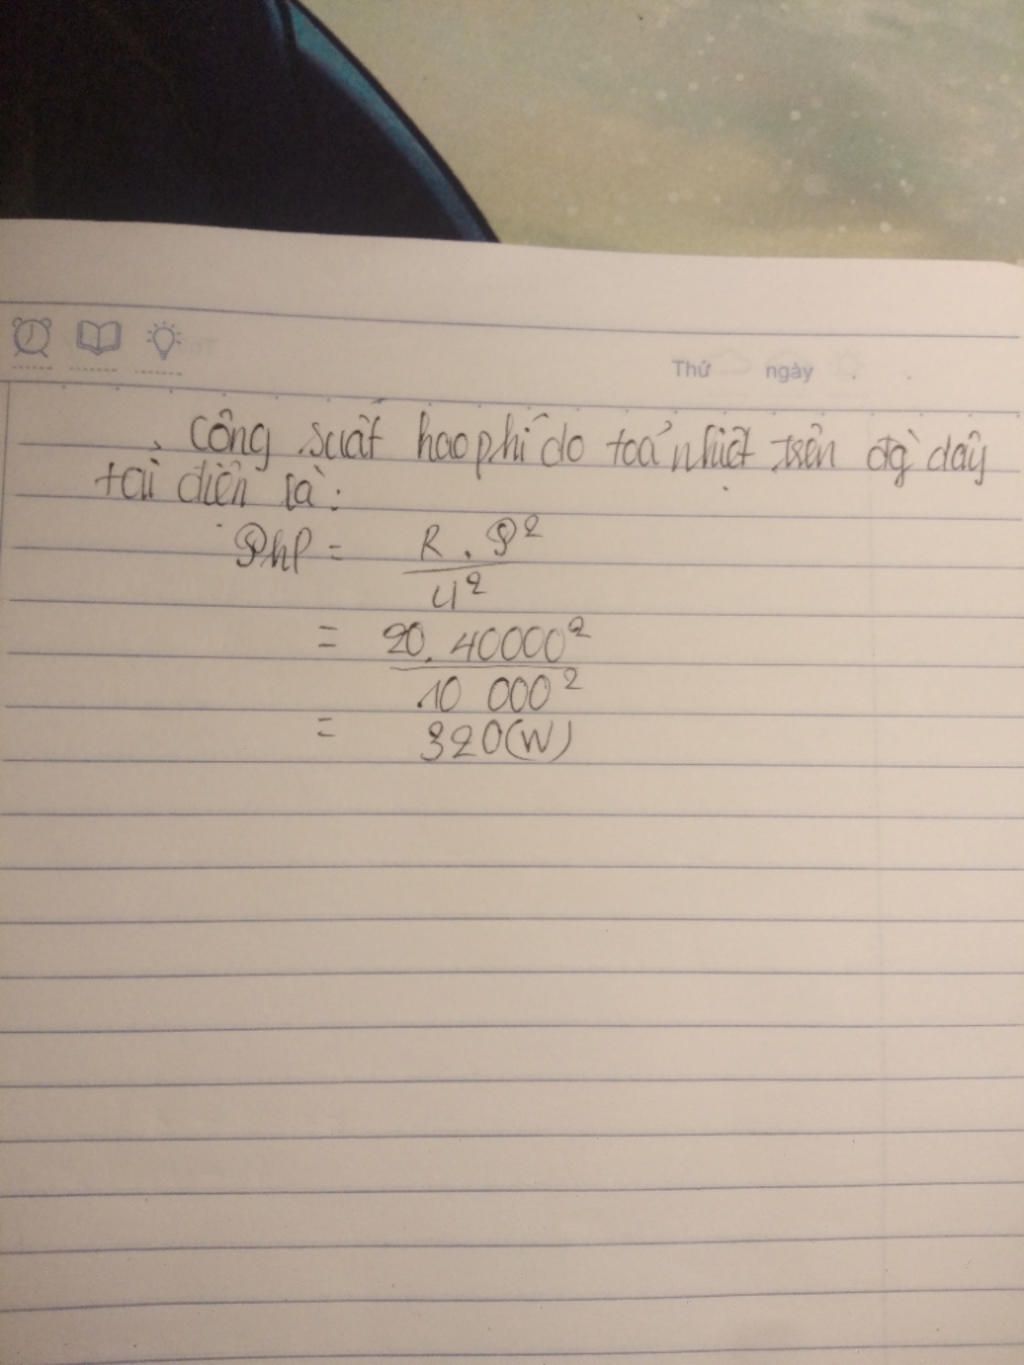 Thứ ngày
Công suất hao phí do toả nhiệt trên đg dây
tải điện là:
Php = R . P²
U²
= 20. 40000²
10 000²
= 320(W)